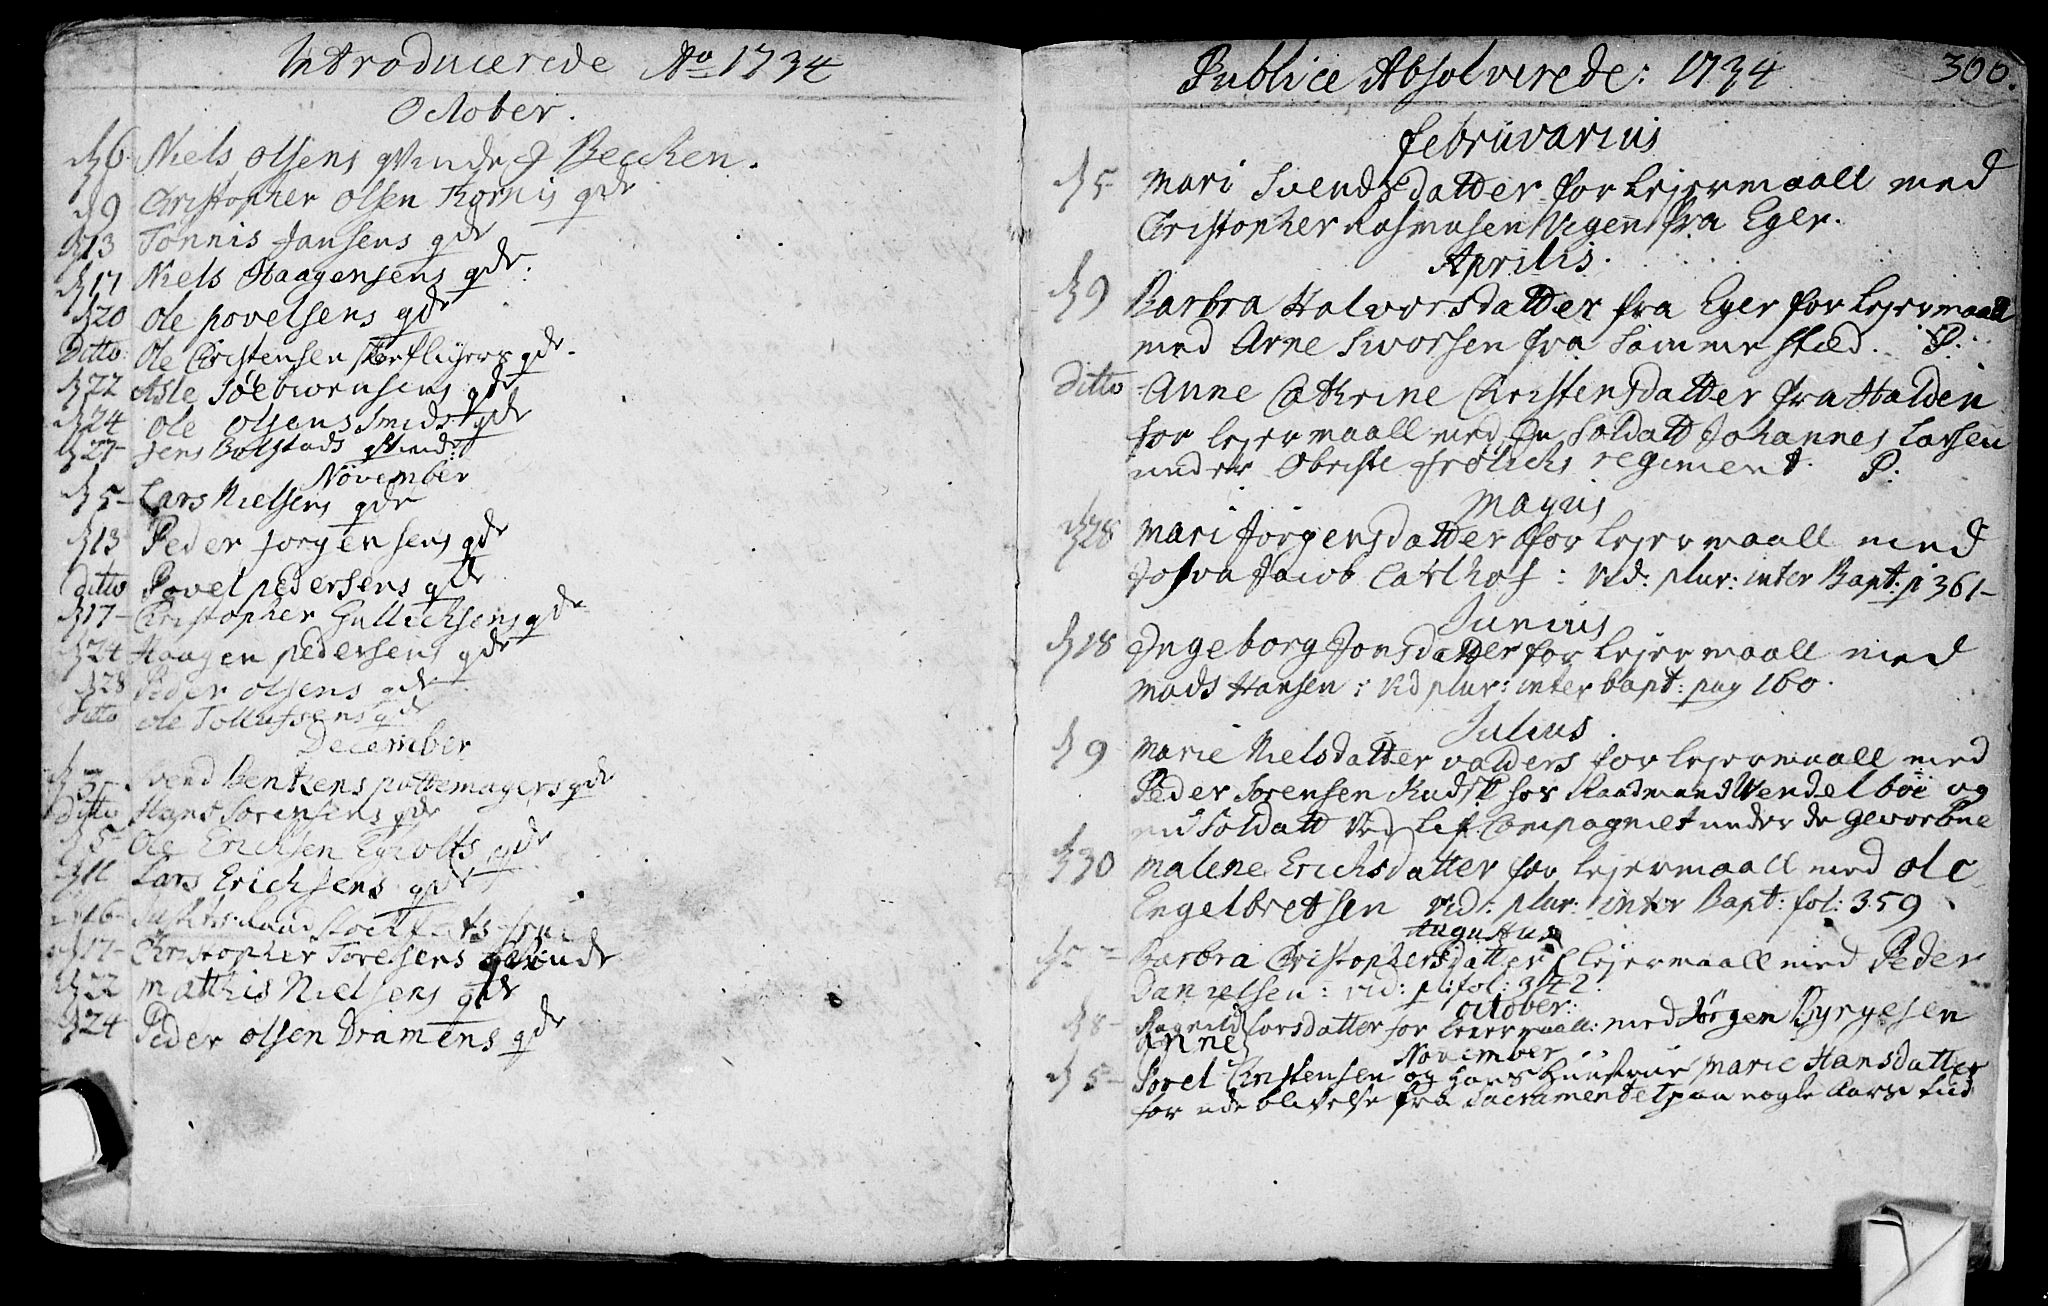 Introducerede Ao 1734
October.
d 6 Niels Olsens qvinde J Becken.
d 9 Christopher Olsen Kornis qde
d 13 Tönnis Jansens qde
d 17 Niels Haagensens qde:
d 20 Ole povelsens qde
Ditto: Ole Christensen qde.
d 22 Asle Töebiörnsens qde
d 24 Ole Olsens Smids qde
d 27 Jens Bolstads qvinde
November
d 5 Lars Nielsens qde
d 13 Peder Jorgensens qde
ditto Povel pedersens qde
d 17 Christopher Gullichsens qde
d 24 Haagen pedersens qde
d 28 Peder Olsens qde
Ditto Ole Tollufsens qde
December
d 3 Svend Bentzens pottemagers qde
ditto Hans Sorensens qde
d 5 Ole Erichsen qde
d 11 Lars Erichsens qde
d 16
d 17 Christopher Toresens qvinde
d 22 Mathis Nielsens qde
d 24 Peder Olsen Dramens qde
Publice Absolverede: 1734 300.
Februvarius
d 5 Mari Svendsdatter for lejermaall med
Christopher Rasmusen Vegen fra Eger.
Aprilis.
d 9 Barbra Halvorsdatter fra Eger for lejermaall
med Arne Sivorsen fra Samme stæd. P.
Ditto Anne Cathrine Christensdatter fra Halden
for lejermaall med En Soldatt Johannes Larsen
under Obriste Frölichs regiment. P:
Mayus
d 28 Mari Jörgensdatter for lejermaall med
Josva Jacob Carlhof: vid: plur: inter Bapt: p 361-
Junius
d 18 Ingeborg Jonsdatter for lejermaall med
Mads Hansen: vid plur: inter bapt: pag 160.
Julius.
d 9 Marie Nielsdatter valders for lejermaall med
Peder Sorensen Kudsk hos Raadmand Wendelboe og
nu Soldatt ved Lif Compagniet under de gevorbne
d 30 Malene Erichsdatter for lejermaall med Ole
Engelbretsen vid: plur: inter Bapt: fol: 359.
Augustus
d Barbra Christophersdatter f lejermaall med Peder
Danielsen: vid: pl: fol: 342.
October:
d 8 Ragnild Larsdatter for lejermaall: med Jörgen Byrgesen
Anne
November
d 5 Povel Christensen og hans Hüustrüe Marie Hansdatter
for udeblifvelse fra Sacramentet paa nogle Aars tiid